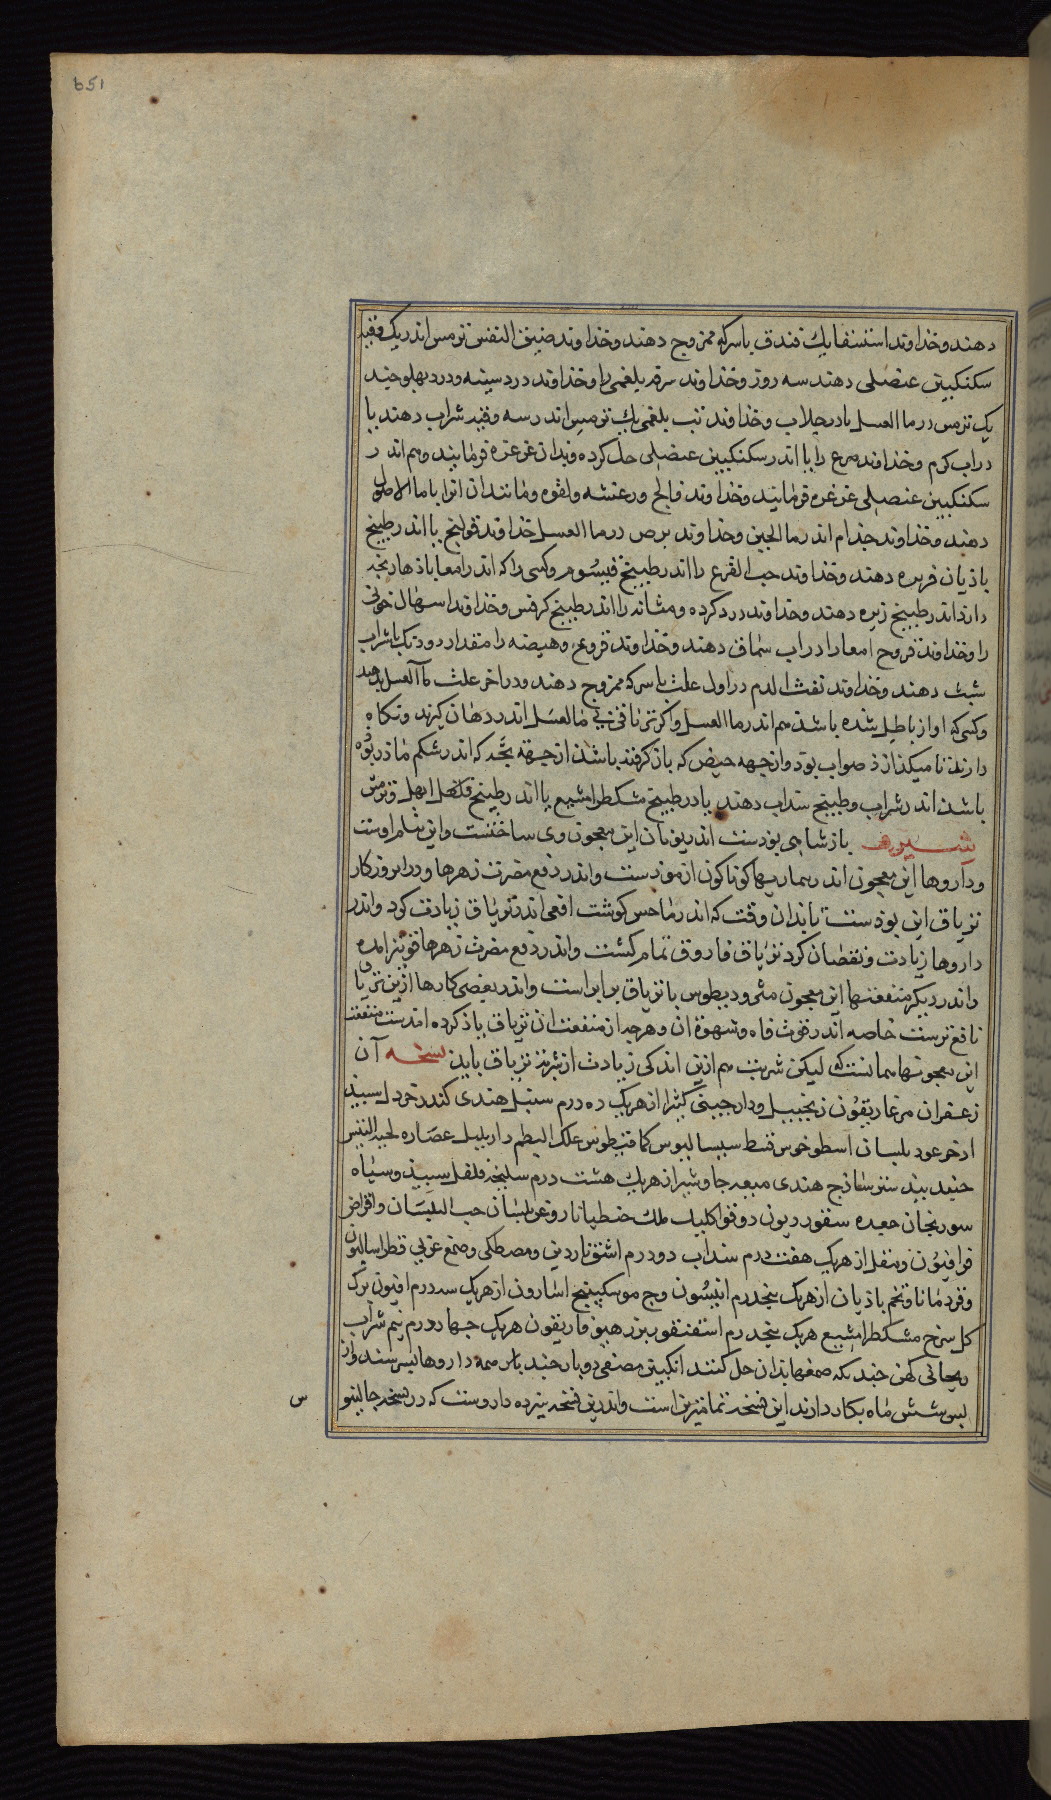 651
دهند و خداوند استسقا یک فندق با سرکه ممزوج دهند و خداوند ضیق النفس ترمس اندر یک وقیه
سکنکبین عنصلی دهند سه روز و خداوند سرفه بلغمی را و خداوند درد سینه و درد پهلو چند
یک ترمس در ما العسل یا در جلاب و خداوند تب بلغمی یک ترمس اندر سه وقیه شراب دهند یا
در آب کرم و خداوند صرع را یا اندر سکنکبین عنصلی حل کرده و بدان غرغره فرمایند و هم اندر
سکنکبین عنصلی غرغره فرمایند و خداوند فالج و رعشه و لقوه و مانند آن انرا با ما الاصول
دهند و خداوند جذام اندر ما الجبن و خداوند برص در ما العسل خداوند قولنج یا اندر طبیخ
باذیان و زیره دهند و خداوند حب القرع را اندر طبیخ قیسوم و کسی را که اندر امعا باذها رنجه
دارد اندر طبیخ زیره دهند و خداوند درد کرده و مثانه را اندر طبیخ کرفس و خداوند اسهال خونی
را و خداوند قروح امعا را در اب سماق دهند و خداوند قروح و هیضه را مقدار دو دنک با شراب
شبت دهند و خداوند نفث الدم در اول علت با سرکه ممزوج دهند و در اخر علت با ما العسل دهند
و کسی که اواز باطل شده باشد هم اندر ما العسل و اکر تر یافتی بی ما العسل اندر دهان کیرند و نکاه
دارند تا میکذازذ صواب بوذ و از جهه حیض که باز کرفته باشد از جهة بچه که اندر شکم ماذر بوذه
باشد اندر شراب و طبیخ سداب دهند یا در طبیخ مشکطرامشیع یا اندر طبیخ ابهل و ترمس
باذشاهی بوذست اندر یونان این معجون وی ساختست و این بنام اوست
و داروها این معجون اندر بیماریها کوناکون ازموذست و اندر دفع مضرت زهرها و در ان روزکار
تریاق این بوذست تا بدان وقت که اندر ماحس کوشت افعی اندر تریاق زیادت کرد و اندر
داروها زیادت و نقصان کرد تریاق فاروق تمام کشت و اندر دفع مضرت زهرها قوی تر امده
و اندر دیکر منفعتها این معجون مثرودیطوس با تریاق برابر است و اندر بعضی کارها ازین تریاق
نافع ترست خاصه اندر قوت باه و شهوة ان و هرچه از منفعت ان تریاق یاد کرده امدست منفعت
این معجونها همانست لیکن شربت هم ازین اندکی زیادت از شربت تریاق باید نسخه آن
زعفران مر غاریقون زنجبیل و دارچینی کثیرا از هر یک ده درم سنبل هندی کندر خردل سبید
اذخر عود بلسان اسطوخوس قسط سیسالیوس کمافیطوس علک البطم دارپلپل عصاره لحیة التیس
جند بیدستر ساذج هندی میعه جاوشیر از هر یک هشت درم سلیخه فلفل سپید و سیاه
سورنجان جعده سقوردیون دوقوا اکلیل ملک جنطیانا روغن بلسان حب البلسان و اقراص
قرافیون و مقل از هر یک هفت درم سنداب دو درم اشق ناردین و مصطکی و صمغ عربی فطراسالیون
و قردمانا و تخم باذیان از هر یک پنجدرم انیسون وج مو سکبینج اسارون از هر یک سه درم افیون برک
کل سرخ مشکطرامشیع هر یک پنجدرم اسقنقور بزر هیوفاریقون هر یک چهار درم نیم شراب
ریحانی کهن چندانکه صمغها بدان حل کنند انکبین مصفی دوبار چند با همه داروها بسرشند و از
بس شش ماه بکار دارند این نسخه تمامترین است و اندرین نسخه سیزده داروست که در نسخه جالینو
س